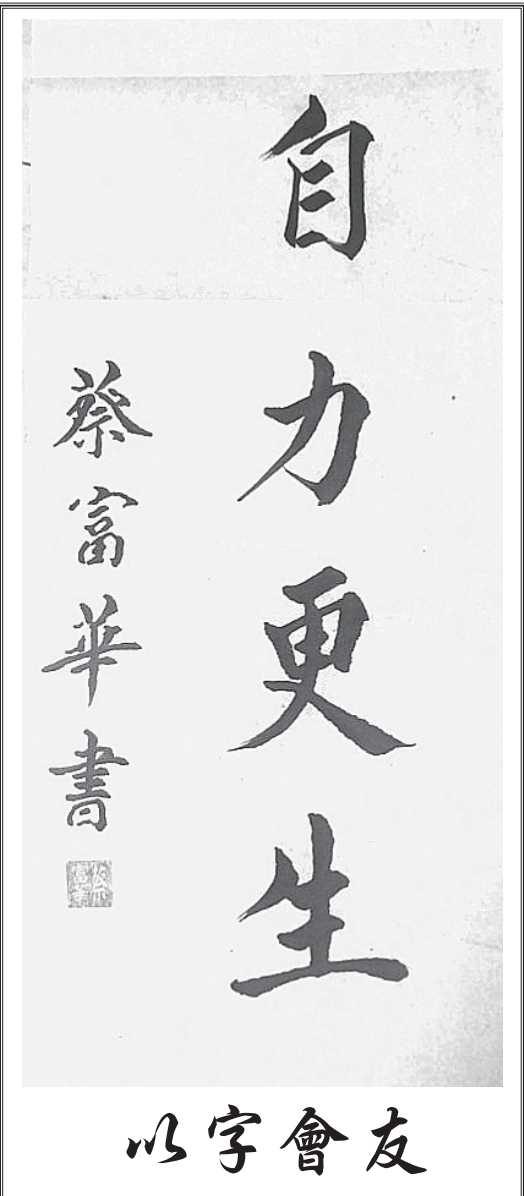 自力更生
蔡富華書
以字會友